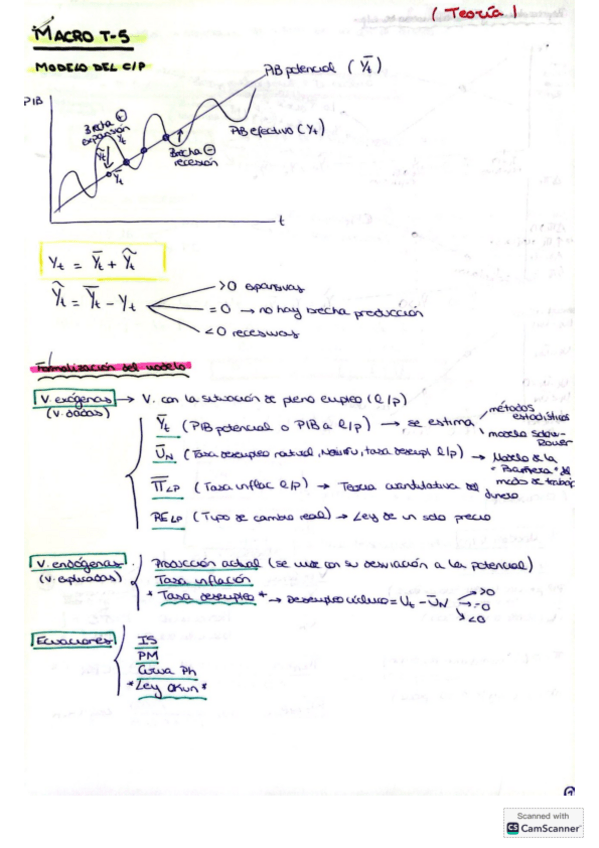 (Teoría)
MACRO T-5
MODELO DEL C/P
PIB potencial (Ȳt)
PIB
Brecha ⊕
expansión
Yt
Ỹt
Ȳt
PIB efectivo (Yt)
Brecha ⊖
recesión
t
Yt = Ȳt + Ỹt
Ỹt = Ȳt - Yt
>0 expansivas
= 0 → no hay brecha producción
<0 recesivas
Formalización del modelo
V. exógenas → V. con la situación de pleno empleo (l/p)
(V. dadas)
Ȳt (PIB potencial o PIB a l/p) → se estima
métodos estadísticos
modelo Solow-
ŪN (Tasa desempleo natural, NAIRU, tasa desempl l/p) → Modelo de la
"Barrera" del
mdo de trabajo
Π̄LP (Tasa inflac l/p) → Teoría cuantitativa del
dinero
RELP (Tipo de cambio real) → Ley de un solo precio
V. endógenas
(V. explicadas)
Producción actual (se mide con su desviación a la potencial)
Tasa inflación
* Tasa desempleo * → desempleo cíclico = Ut - ŪN
>0
=0
<0
Ecuaciones
IS
PM
Curva Ph
*Ley Okun*
Scanned with
CS CamScanner